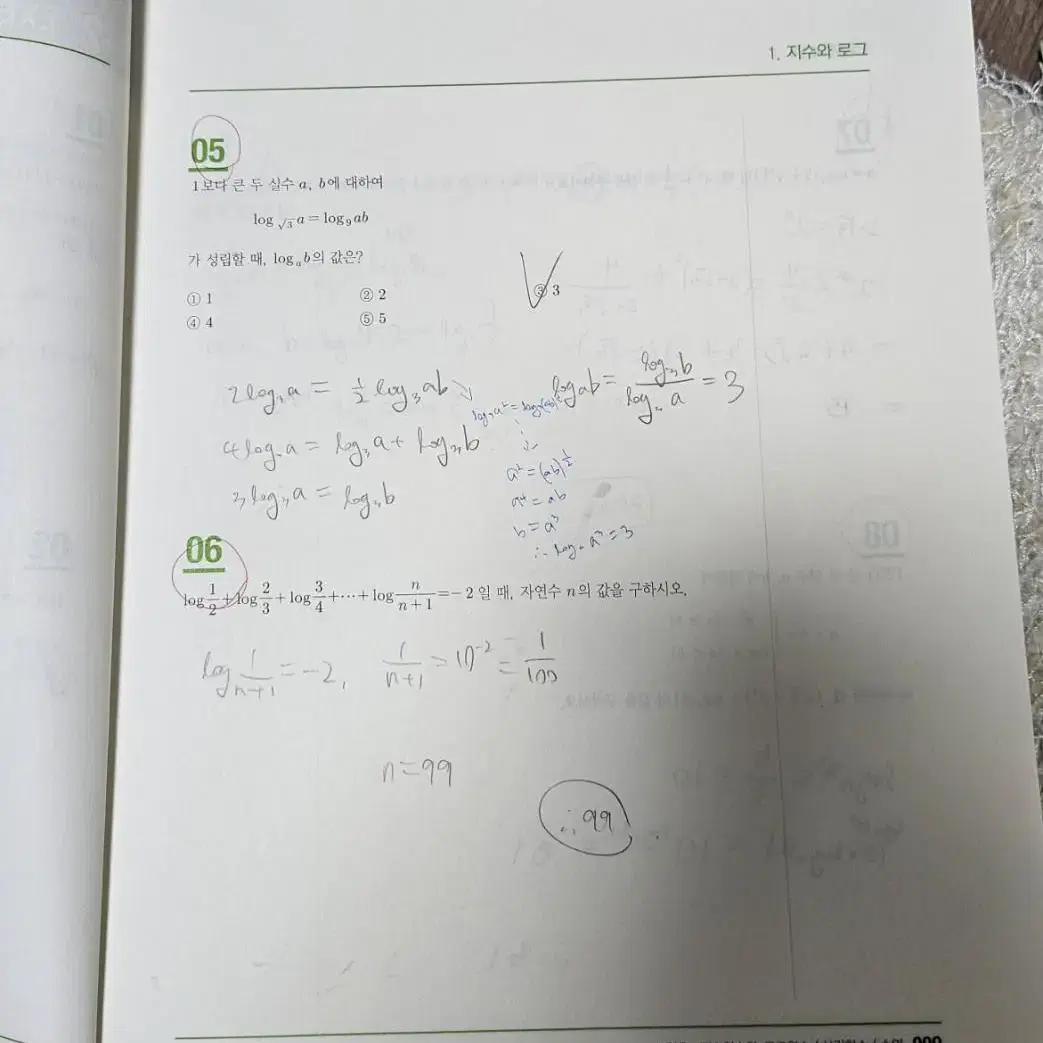 1. 지수와 로그
05
1보다 큰 두 실수 a, b에 대하여
log_√3 a = log_9 ab
가 성립할 때, log_a b의 값은?
① 1 ② 2 ③ 3
④ 4 ⑤ 5
2log_3 a = 1/2 log_3 ab
4log_3 a = log_3 a + log_3 b
3log_3 a = log_3 b
log_a b = log_3 b / log_3 a = 3
a² = (ab)^1/2
a⁴ = ab
b = a³
∴ log_a a³ = 3
06
log 1/2 + log 2/3 + log 3/4 + ⋯ + log n/(n+1) = -2 일 때, 자연수 n의 값을 구하시오.
log 1/(n+1) = -2, 1/(n+1) = 10^-2 = 1/100
n = 99
∴ 99